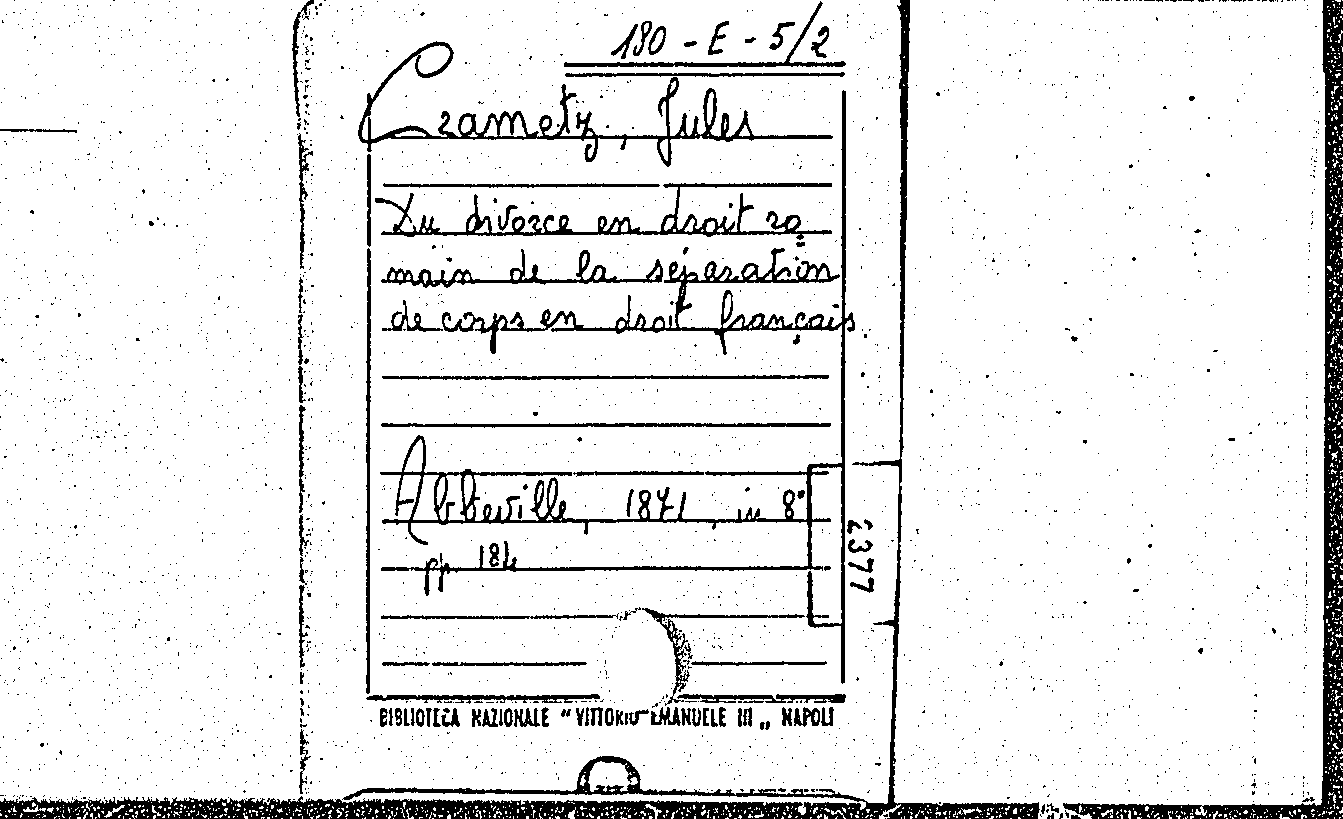 180 - E - 5/2
Crametz, Jules
Du divorce en droit ro=
main de la séparation
de corps en droit français
Abbeville, 1871, in 8°
pp. 184
2377
BIBLIOTECA NAZIONALE “ VITTORIO EMANUELE III „ NAPOLI